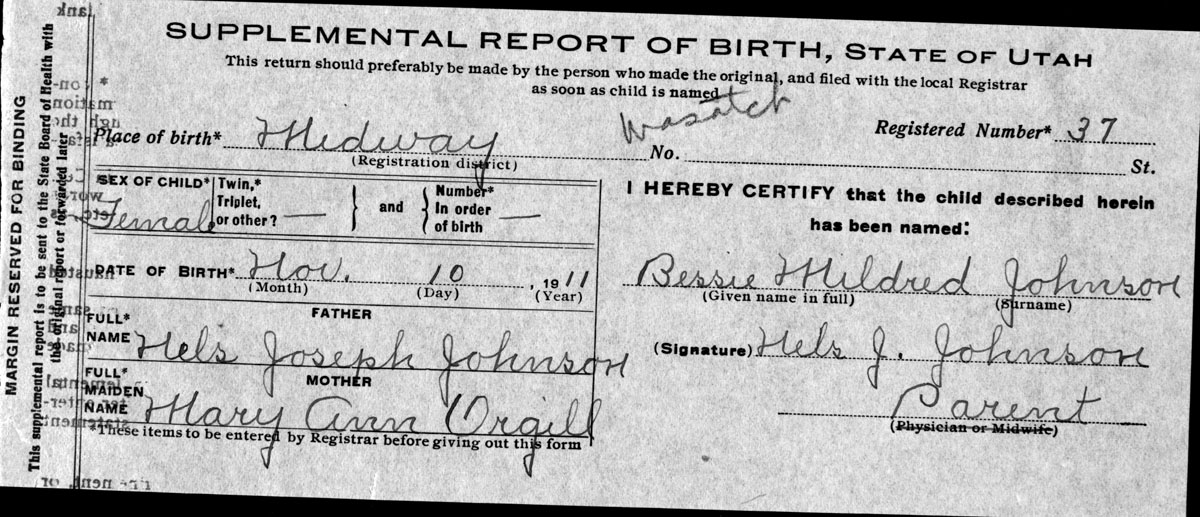 SUPPLEMENTAL REPORT OF BIRTH, STATE OF UTAH
This return should preferably be made by the person who made the original, and filed with the local Registrar
as soon as child is named
Wasatch
Registered Number* 37
Place of birth* Midway No. St.
(Registration district)
SEX OF CHILD* Female
Twin,* Triplet, or other? — } and { Number* In order of birth —
DATE OF BIRTH* Nov. 10, 1911
(Month) (Day) (Year)
FATHER
FULL* NAME Nels Joseph Johnson
MOTHER
FULL* MAIDEN NAME Mary Ann Orgill
*These items to be entered by Registrar before giving out this form
I HEREBY CERTIFY that the child described herein
has been named:
Bessie Mildred Johnson
(Given name in full) (Surname)
(Signature) Nels J. Johnson
Parent
(Physician or Midwife)
MARGIN RESERVED FOR BINDING
This supplemental report is to be sent to the State Board of Health with
the original report or forwarded later